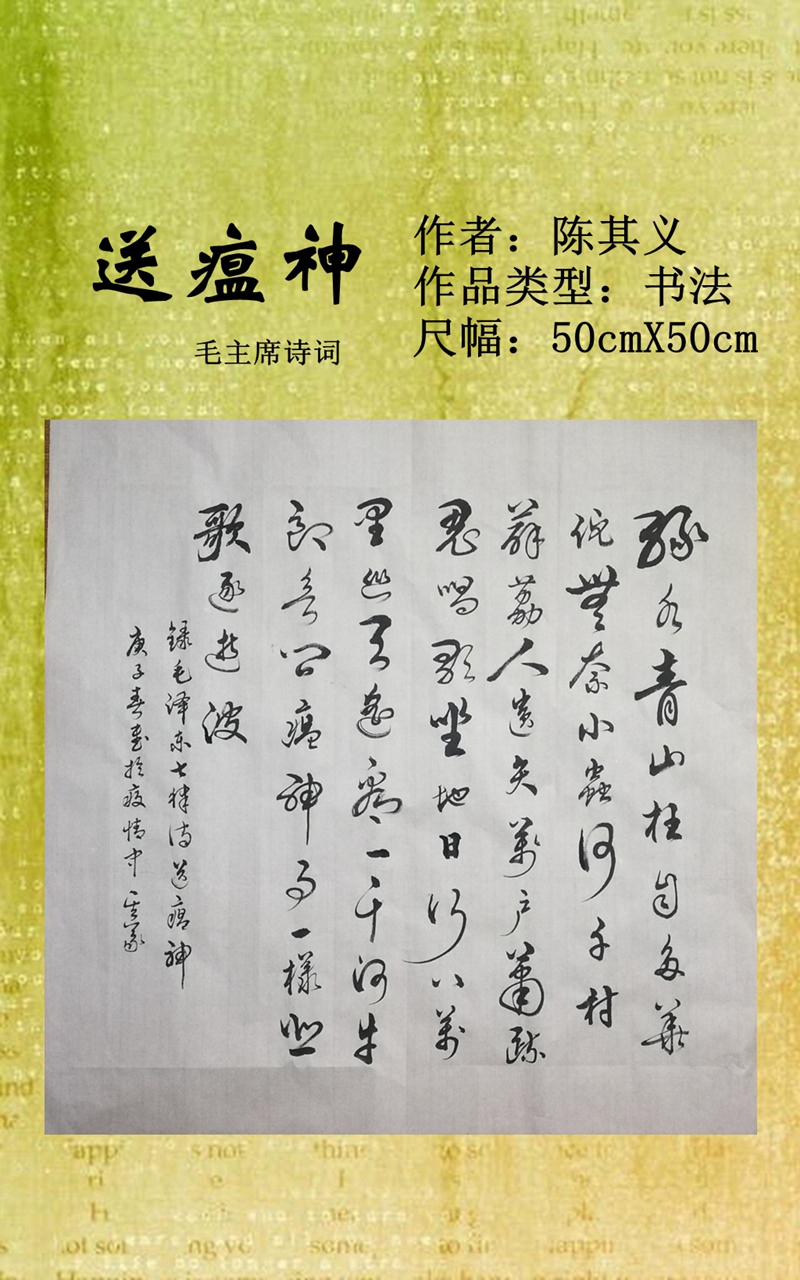 送瘟神
毛主席诗词
作者：陈其义
作品类型：书法
尺幅：50cmX50cm
綠水青山枉自多華
佗無奈小蟲何千村
薜荔人遺矢萬户蕭疏
鬼唱歌坐地日行八萬
里巡天遙看一千河牛
郎欲問瘟神事一樣悲
歌逐逝波
録毛泽东七律诗送瘟神
庚子春書於疫情中